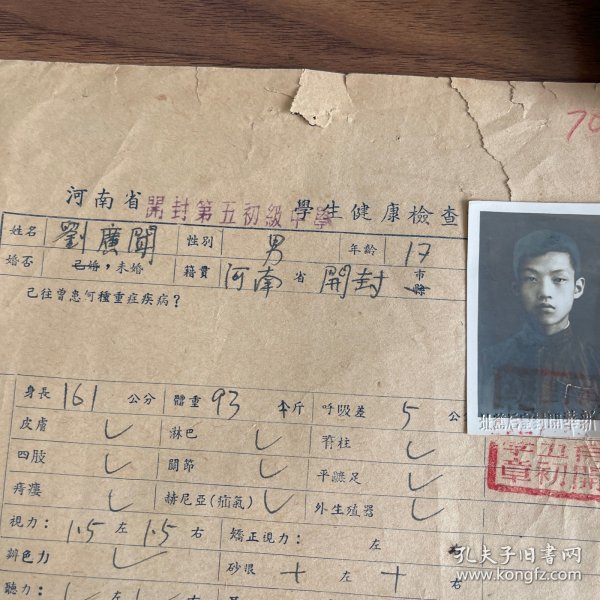 70
河南省開封第五初級中學學生健康檢查
姓名 劉廣聞 性別 男 年齡 17
婚否 已婚，未婚 籍貫 河南 省 開封 市縣
已往曾患何種重症疾病？
身長 161 公分 體重 93 斤 呼吸差 5 公
皮膚 ✓ 淋巴 ✓ 脊柱 ✓
四肢 ✓ 關節 ✓ 平蹠足 ✓
痔瘻 ✓ 赫尼亞(疝氣) ✓ 外生殖器 ✓
視力： 1.5 左 1.5 右 矯正視力： 左 右
辨色力 ✓ 砂眼 + 左 + 右
聽力： 左 右
孔夫子旧书网
kongfz.com